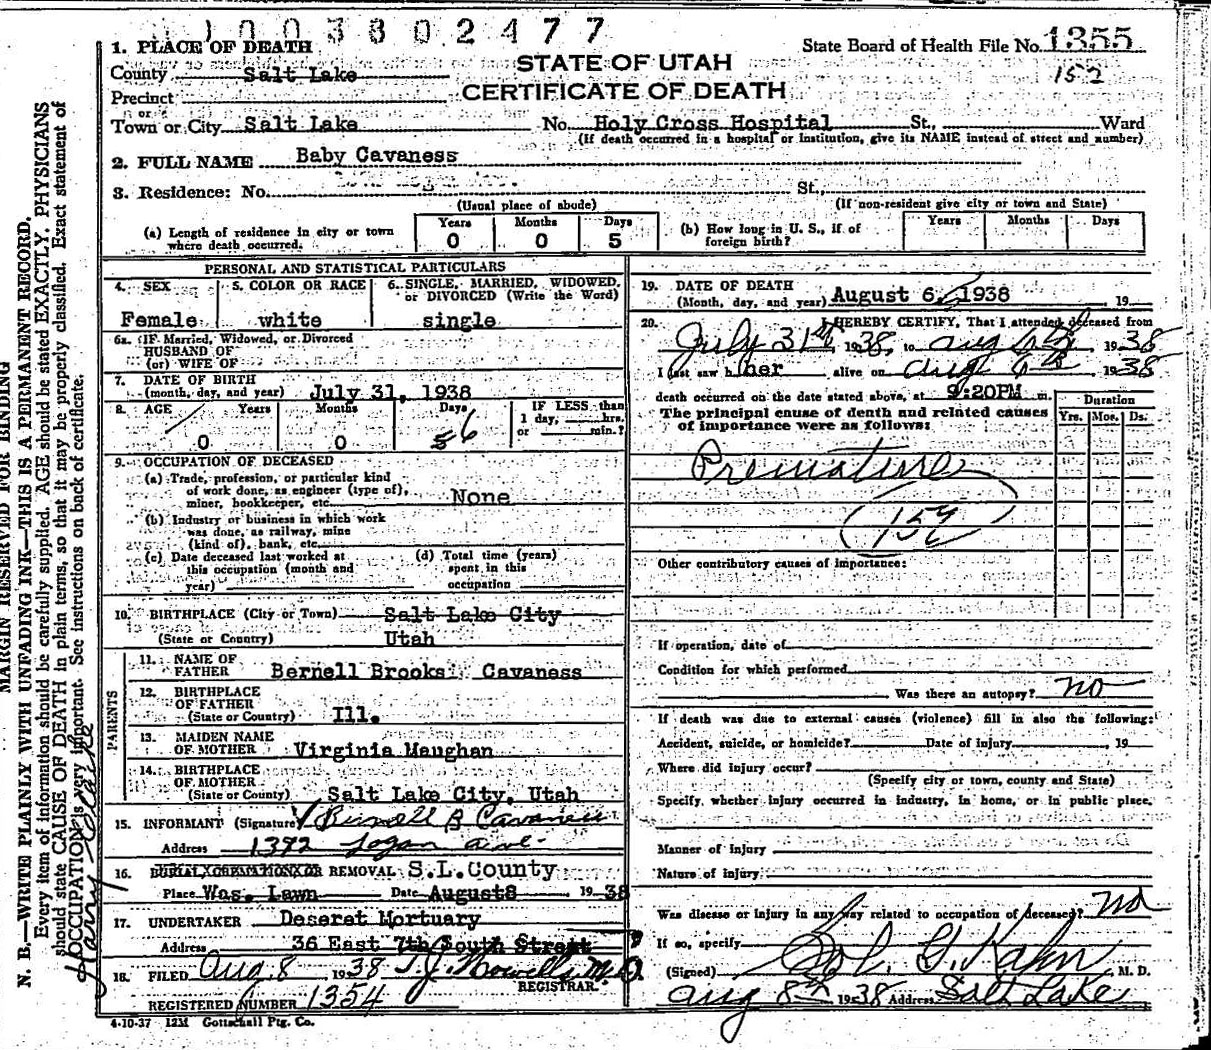 1003802477
1. PLACE OF DEATH
State Board of Health File No. 1355
152
STATE OF UTAH
CERTIFICATE OF DEATH
County Salt Lake
Precinct
or
Town or City Salt Lake No. Holy Cross Hospital St., Ward
(If death occurred in a hospital or institution, give its NAME instead of street and number)
2. FULL NAME Baby Cavaness
3. Residence: No. St.,
(Usual place of abode) (If non-resident give city or town and State)
(a) Length of residence in city or town where death occurred. Years 0 Months 0 Days 5
(b) How long in U. S., if of foreign birth? Years Months Days
PERSONAL AND STATISTICAL PARTICULARS
4. SEX Female
5. COLOR OR RACE white
6. SINGLE, MARRIED, WIDOWED, or DIVORCED (Write the Word) single
6a. IF Married, Widowed, or Divorced
HUSBAND OF
(or) WIFE OF
7. DATE OF BIRTH
(month, day, and year) July 31, 1938
8. AGE Years 0 Months 0 Days 5 6 IF LESS than 1 day, hrs. or min.?
9. OCCUPATION OF DECEASED
(a) Trade, profession, or particular kind
of work done, as engineer (type of),
miner, bookkeeper, etc. None
(b) Industry or business in which work
was done, as railway, mine
(kind of), bank, etc.
(c) Date deceased last worked at this occupation (month and year)
(d) Total time (years) spent in this occupation
10. BIRTHPLACE (City or Town) Salt Lake City
(State or Country) Utah
PARENTS
11. NAME OF FATHER Bernell Brooks Cavaness
12. BIRTHPLACE OF FATHER
(State or Country) Ill.
13. MAIDEN NAME OF MOTHER Virginia Maughan
14. BIRTHPLACE OF MOTHER
(State or County) Salt Lake City, Utah
15. INFORMANT (Signature) Burnell B Cavaness
Address 1392 Logan ave.
16. BURIAL, CREMATION, OR REMOVAL S.L.County
Place Was. Lawn Date August 8 1938
17. UNDERTAKER Deseret Mortuary
Address 36 East 7th South Street
18. FILED Aug. 8 1938 T. J. Howells, M.D.
REGISTRAR.
REGISTERED NUMBER 1354
4-10-37 12M Gottschall Ptg. Co.
19. DATE OF DEATH
(Month, day, and year) August 6, 1938 , 19
20. I HEREBY CERTIFY, That I attended deceased from
July 31st, 1938, to aug 6th, 1938
I last saw h her alive on aug 6th, 1938
death occurred on the date stated above, at 9:20PM m.
The principal cause of death and related causes
of importance were as follows:
Duration
Yrs. Mos. Ds.
Premature
(159)
Other contributory causes of importance:
If operation, date of
Condition for which performed
Was there an autopsy? no
If death was due to external causes (violence) fill in also the following:
Accident, suicide, or homicide? Date of injury , 19
Where did injury occur?
(Specify city or town, county and State)
Specify, whether injury occurred in industry, in home, or in public place.
Manner of injury
Nature of injury
Was disease or injury in any way related to occupation of deceased? no
If so, specify
(Signed) Sol. G. Kahn, M. D.
aug 8th 1938 Address Salt Lake
MARGIN RESERVED FOR BINDING
N. B.—WRITE PLAINLY WITH UNFADING INK—THIS IS A PERMANENT RECORD.
Every item of information should be carefully supplied. AGE should be stated EXACTLY. PHYSICIANS
should state CAUSE OF DEATH in plain terms, so that it may be properly classified. Exact statement of
OCCUPATION is very important. See instructions on back of certificate.
Harry Clarke